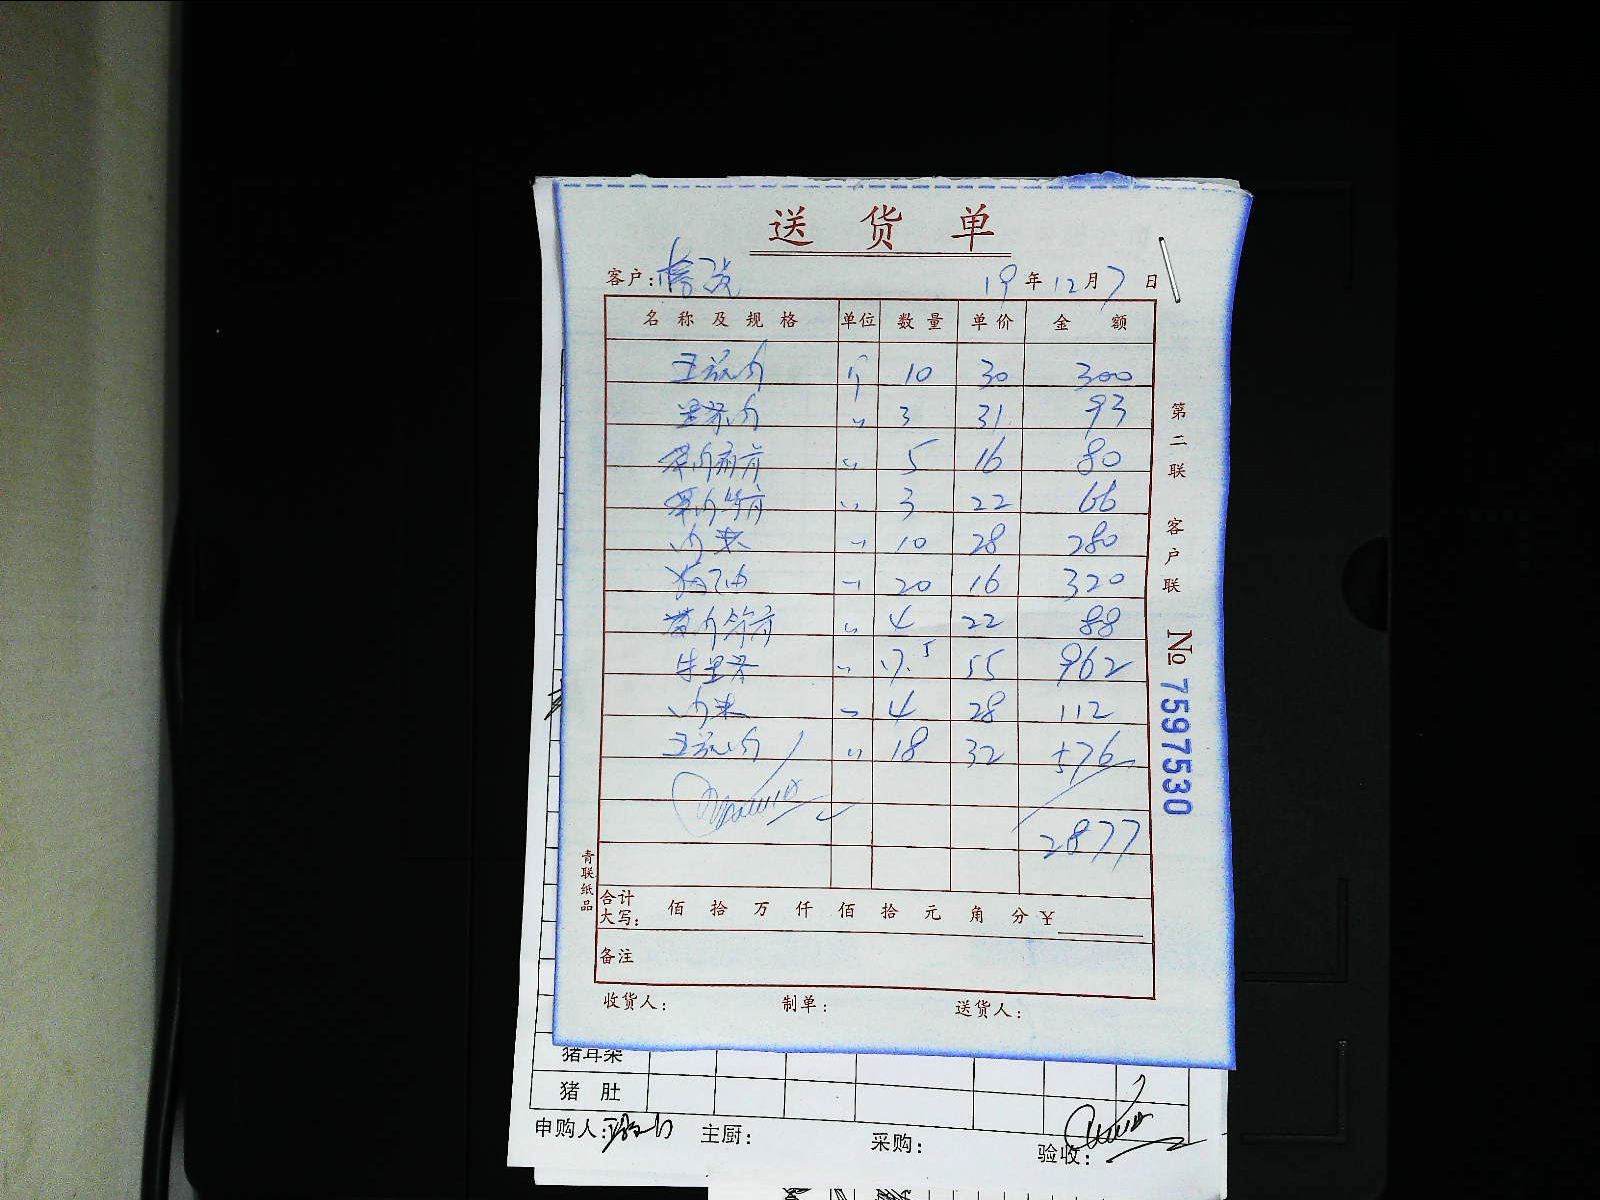 送 货 单
客户: 19 年 12 月 7 日
名 称 及 规 格 单位 数 量 单 价 金 额
五花肉 斤 10 30 300
里脊肉 〃 3 31 93
〃 5 16 80
〃 3 22 66
肉末 〃 10 28 280
〃 20 16 320
〃 4 22 88
牛里脊 〃 17.5 55 962
肉末 〃 4 28 112
五花肉 〃 18 32 576
2877
合计大写: 佰 拾 万 仟 佰 拾 元 角 分 ¥
备注
收货人: 制单: 送货人:
青联纸品
第二联 客户联
№ 7597530
猪耳朵
猪 肚
申购人: 主厨: 采购: 验收: